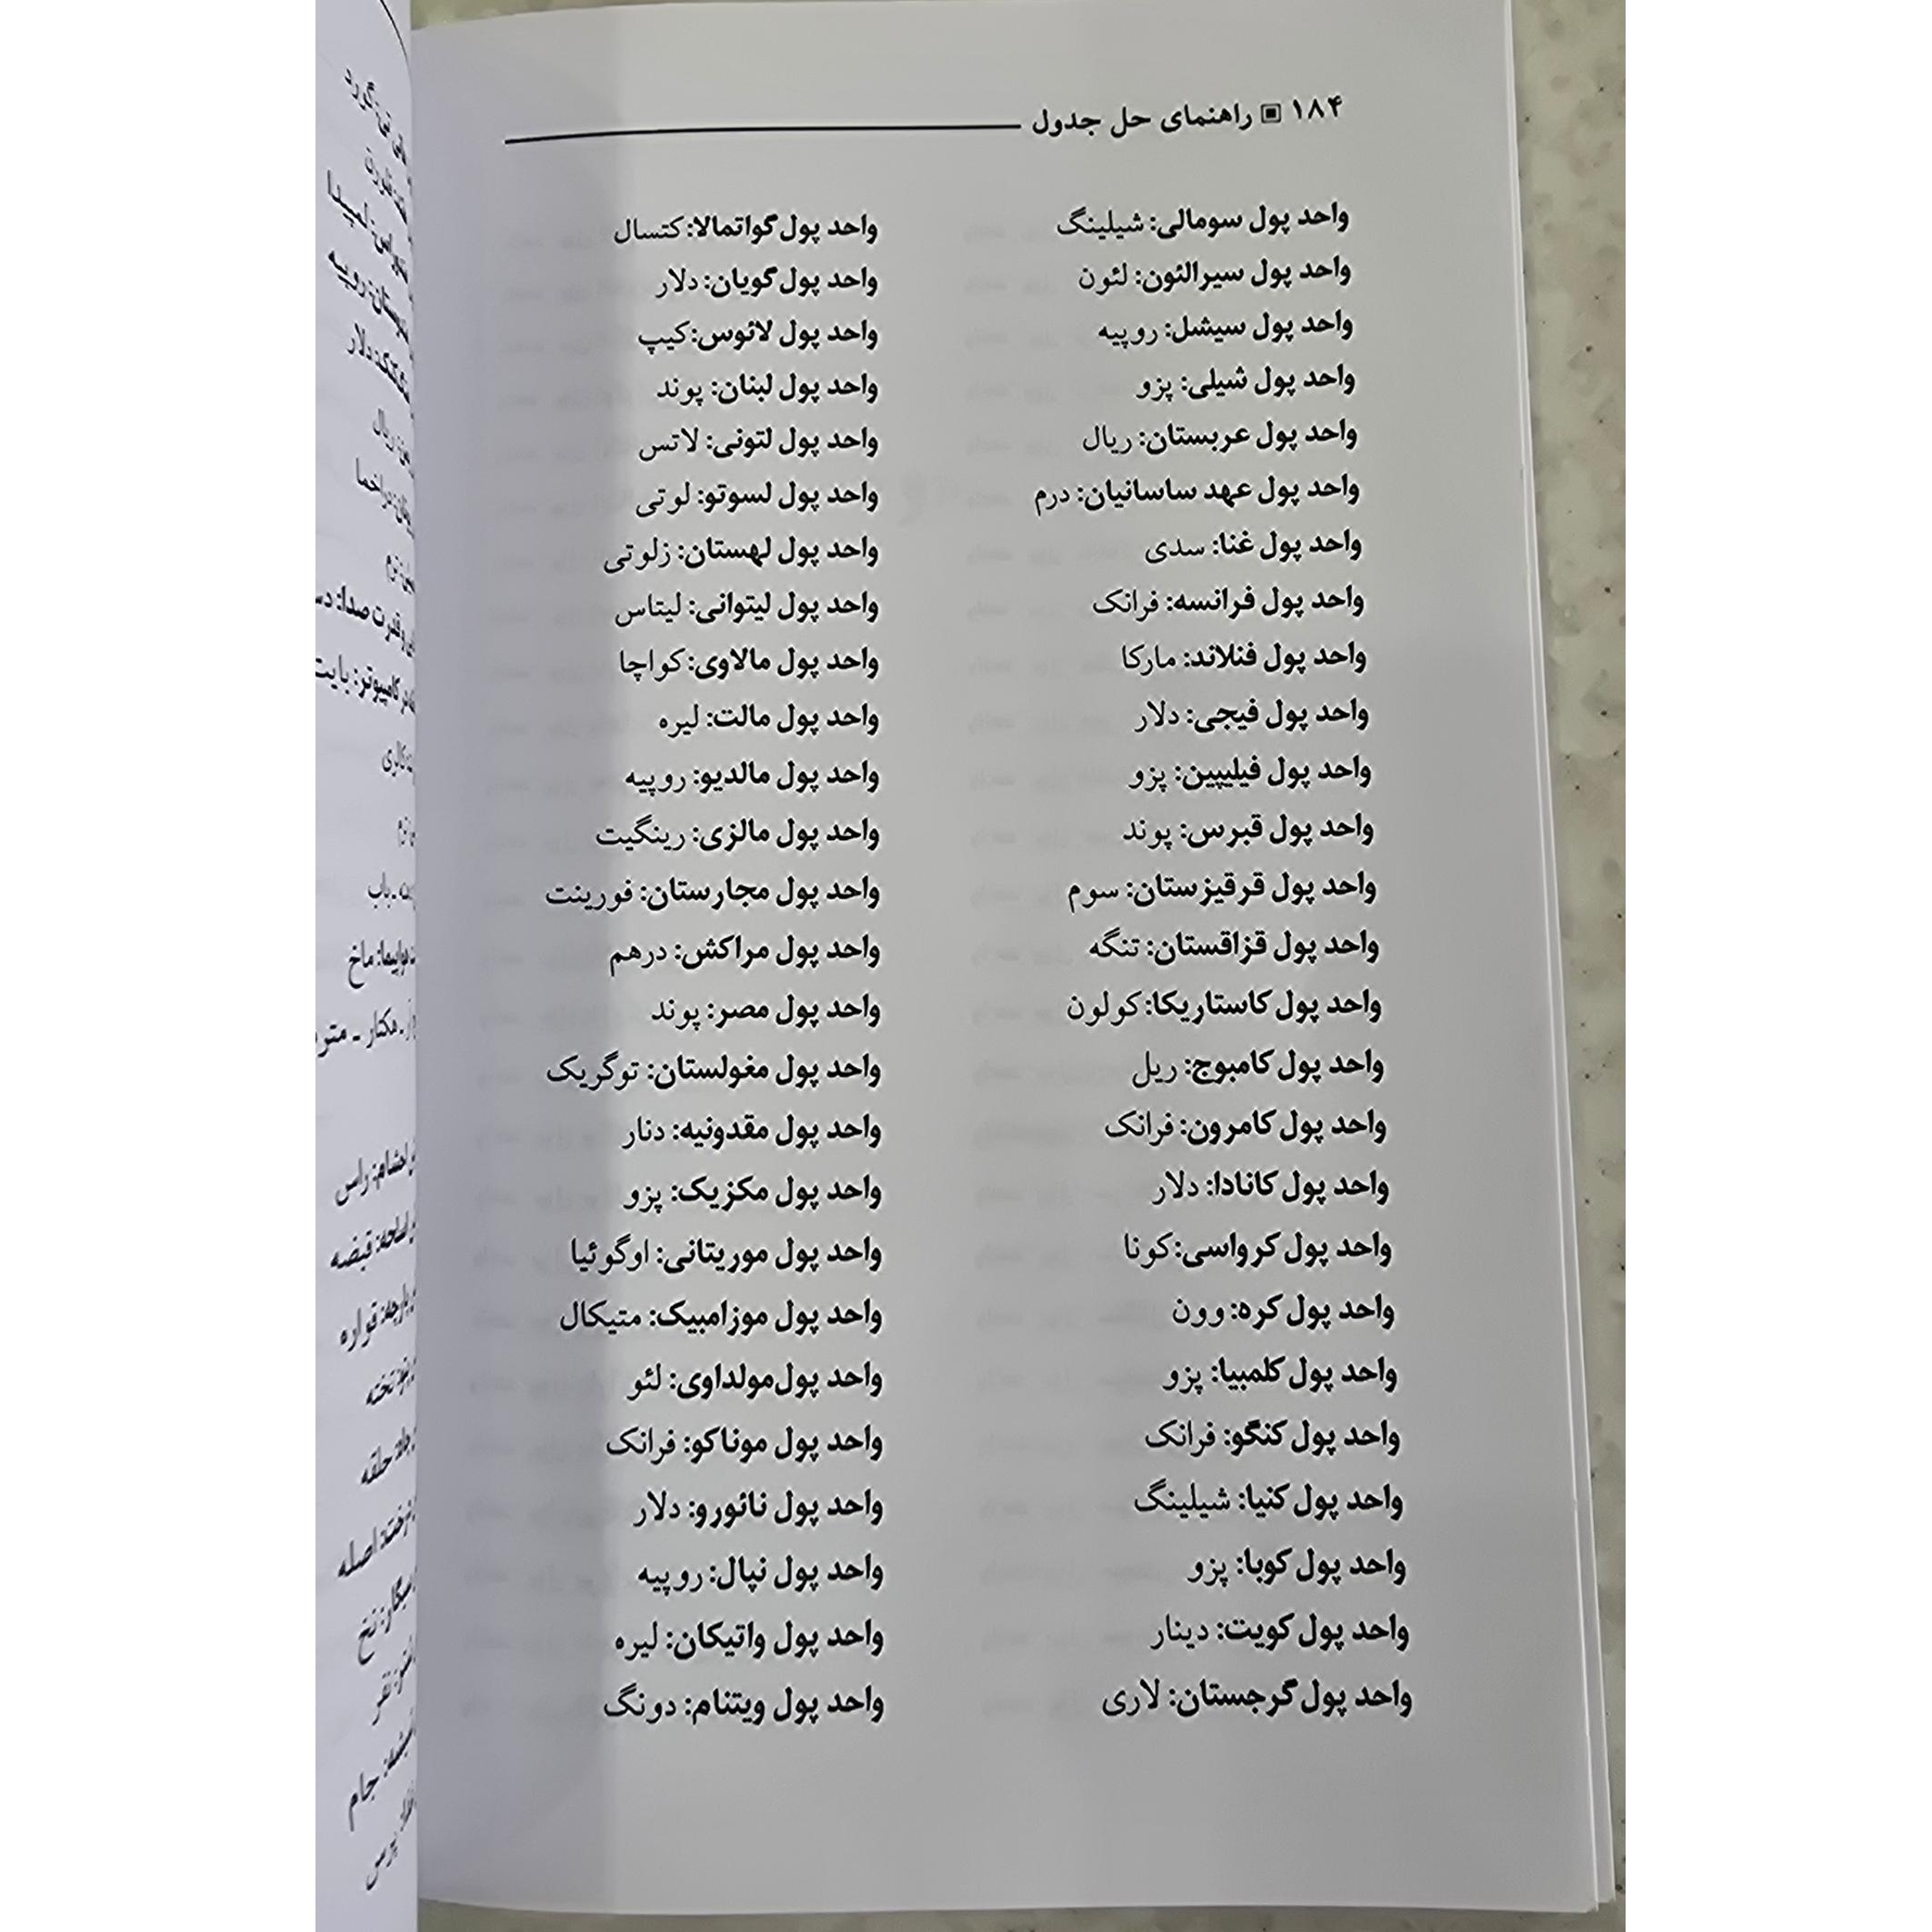 ۱۸۴ ▣ راهنمای حل جدول
واحد پول سومالی: شیلینگ
واحد پول سیرالئون: لئون
واحد پول سیشل: روپیه
واحد پول شیلی: پزو
واحد پول عربستان: ریال
واحد پول عهد ساسانیان: درم
واحد پول غنا: سدی
واحد پول فرانسه: فرانک
واحد پول فنلاند: مارکا
واحد پول فیجی: دلار
واحد پول فیلیپین: پزو
واحد پول قبرس: پوند
واحد پول قرقیزستان: سوم
واحد پول قزاقستان: تنگه
واحد پول کاستاریکا: کولون
واحد پول کامبوج: ریل
واحد پول کامرون: فرانک
واحد پول کانادا: دلار
واحد پول کرواسی: کونا
واحد پول کره: وون
واحد پول کلمبیا: پزو
واحد پول کنگو: فرانک
واحد پول کنیا: شیلینگ
واحد پول کوبا: پزو
واحد پول کویت: دینار
واحد پول گرجستان: لاری
واحد پول گواتمالا: کتسال
واحد پول گویان: دلار
واحد پول لائوس: کیپ
واحد پول لبنان: پوند
واحد پول لتونی: لاتس
واحد پول لسوتو: لوتی
واحد پول لهستان: زلوتی
واحد پول لیتوانی: لیتاس
واحد پول مالاوی: کواچا
واحد پول مالت: لیره
واحد پول مالدیو: روپیه
واحد پول مالزی: رینگیت
واحد پول مجارستان: فورینت
واحد پول مراکش: درهم
واحد پول مصر: پوند
واحد پول مغولستان: توگریک
واحد پول مقدونیه: دنار
واحد پول مکزیک: پزو
واحد پول موریتانی: اوگوئیا
واحد پول موزامبیک: متیکال
واحد پول مولداوی: لئو
واحد پول موناکو: فرانک
واحد پول نائورو: دلار
واحد پول نپال: روپیه
واحد پول واتیکان: لیره
واحد پول ویتنام: دونگ
روپیه
دلار
ریال
دراخما
و قدرت صدا:
کامپیوتر: بایت
کالری
باب
ماخ
هکتار ـ متر
احشام: راس
اسلحه: قبضه
قواره
تخته
حلقه
اصله
سیگار: نخ
نفر
جام